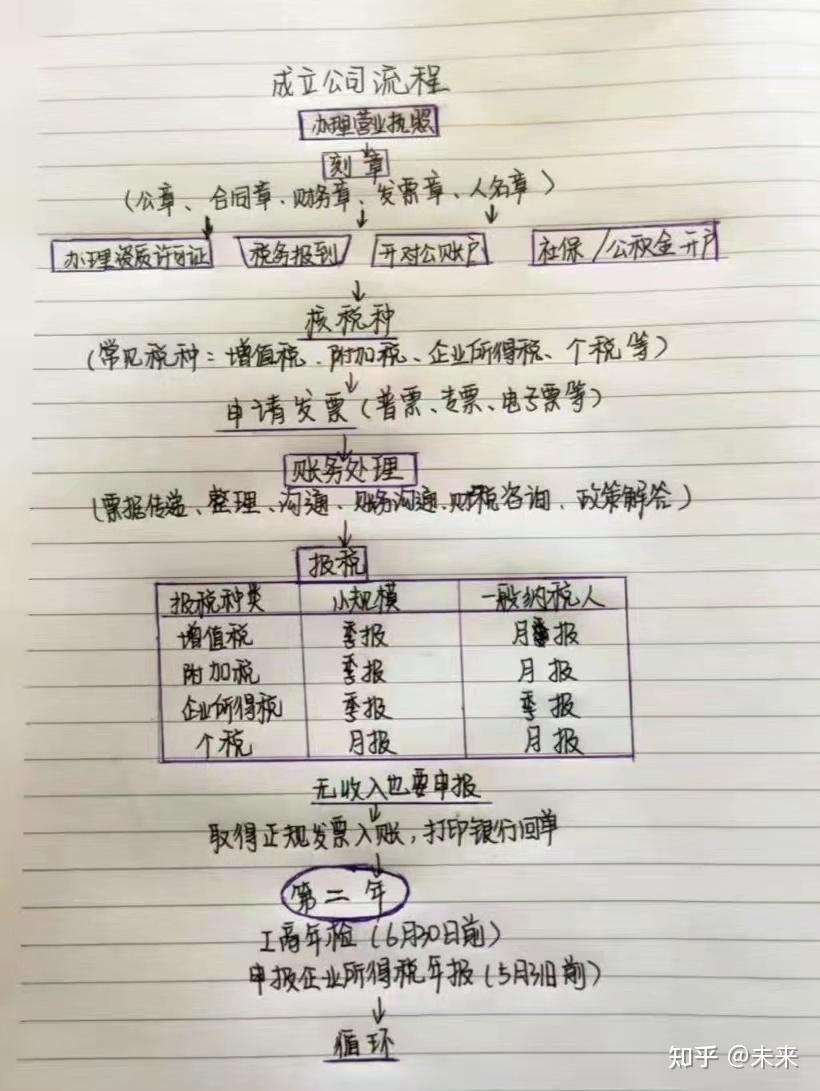 成立公司流程
办理营业执照
刻章
(公章、合同章、财务章、发票章、人名章)
办理资质许可证 税务报到 开对公账户 社保/公积金开户
核税种
(常见税种：增值税、附加税、企业所得税、个税等)
申请发票(普票、专票、电子票等)
账务处理
(票据传递、整理、沟通、账务沟通、财税咨询、政策解答)
报税
报税种类 小规模 一般纳税人
增值税 季报 月报
附加税 季报 月报
企业所得税 季报 季报
个税 月报 月报
无收入也要申报
取得正规发票入账,打印银行回单
第二年
工商年检(6月30日前)
申报企业所得税年报(5月31日前)
循环
知乎 @未来